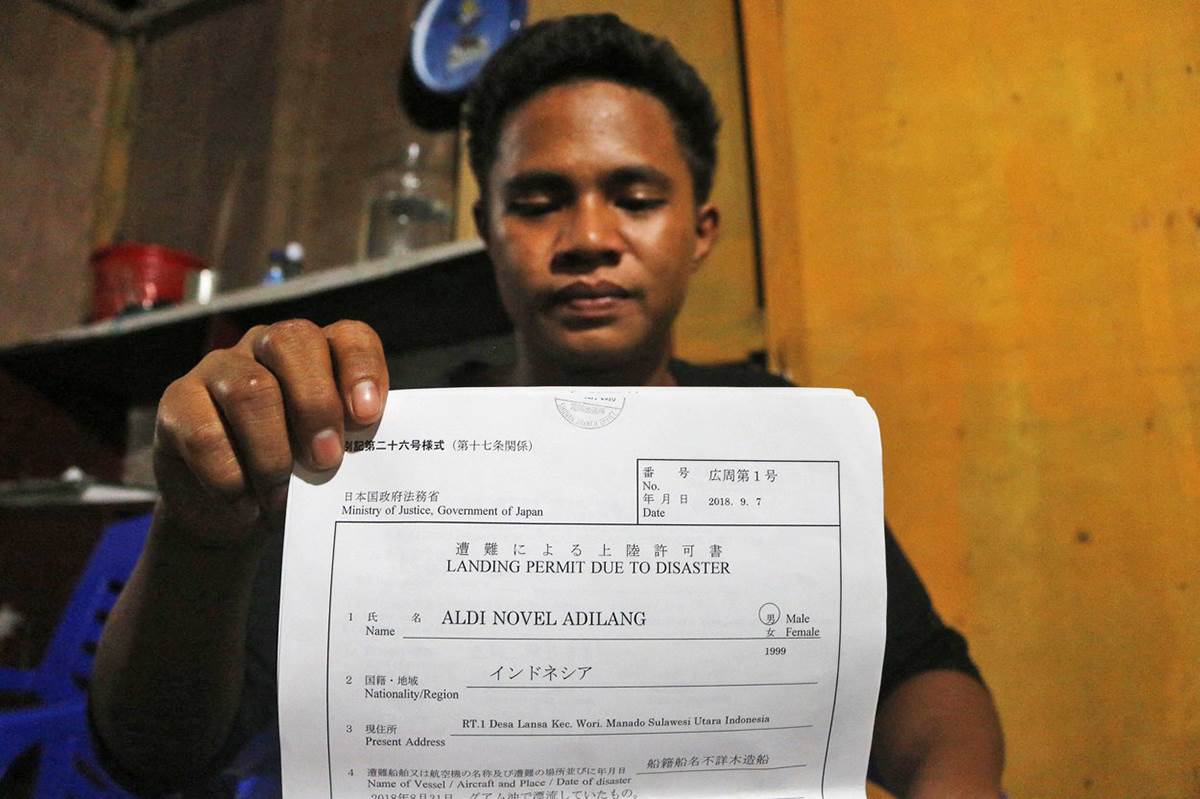 記第二十六号様式（第十七条関係）
番 号 広周第1号
No.
年 月 日 2018. 9. 7
Date
日本国政府法務省
Ministry of Justice, Government of Japan
遭 難 に よ る 上 陸 許 可 書
LANDING PERMIT DUE TO DISASTER
1 氏 名 ALDI NOVEL ADILANG 男 Male
Name 女 Female
1999
2 国籍・地域 インドネシア
Nationality/Region
3 現住所 RT.1 Desa Lansa Kec. Wori. Manado Sulawesi Utara Indonesia
Present Address
船籍船名不詳木造船
4 遭難船舶又は航空機の名称及び遭難の場所並びに年月日
Name of Vessel / Aircraft and Place / Date of disaster
2018年8月31日、グアム沖で漂流していたもの。